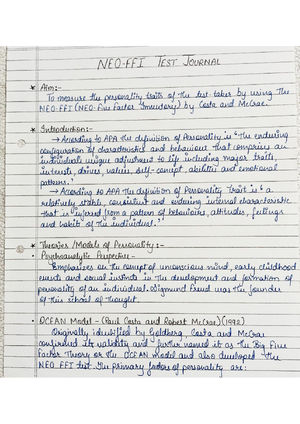 NEO-FFI TEST JOURNAL
* Aim:-
To measure the personality traits of the test taker by using the
NEO-FFI (NEO-Five Factor Inventory) by Costa and McCrae.
* Introduction:-
→ According to APA the definition of Personality is "The enduring
configuration of characteristics and behaviour that comprises an
individual's unique adjustment to life, including major traits,
interests, drives, values, self-concept, abilities and emotional
patterns."
→ According to APA the definition of Personality Trait is "a
relatively stable, consistent and enduring internal characteristic
that is inferred from a pattern of behaviours, attitudes, feelings
and habits of the individual."
* Theories / Models of Personality :-
• Psychoanalytic Perspective -
Emphasizes on the concept of unconscious mind, early childhood
events and social instincts in the development and formation of
personality of an individual. Sigmund Freud was the founder
of this School of Thought.
• OCEAN Model - (Paul Costa and Robert McCrae) (1992)
Originally identified by Goldberg, Costa and McCrae
confirmed its validity and further named it as the Big Five
Factor Theory or the OCEAN model and also developed the
NEO FFI test. The primary factors of personality are: